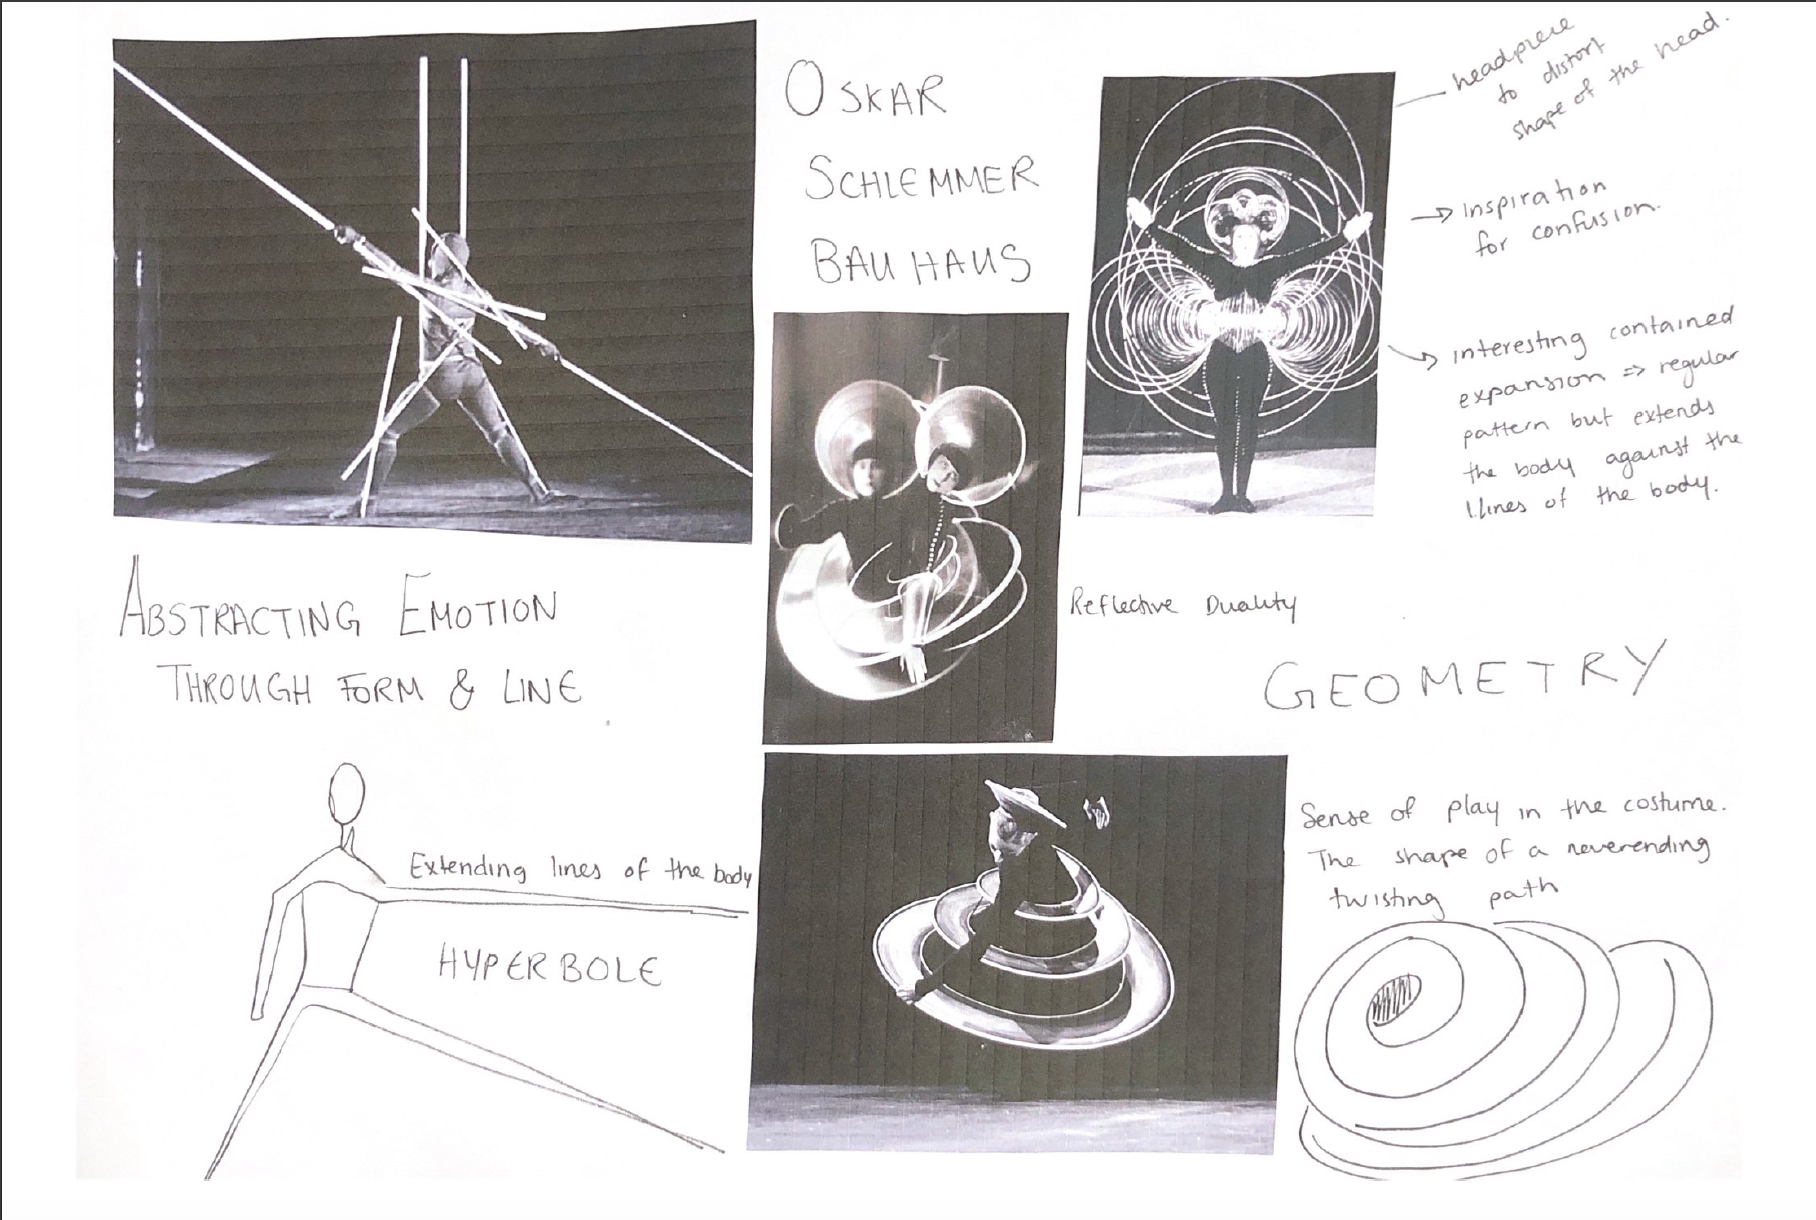 OSKAR
SCHLEMMER
BAUHAUS
headpiece
to distort
shape of the head.
→ Inspiration
for confusion.
→ Interesting contained
expansion ⇒ regular
pattern but extends
the body against the
lines of the body.
ABSTRACTING EMOTION
THROUGH FORM & LINE
Reflective Duality
GEOMETRY
Extending lines of the body
HYPERBOLE
Sense of play in the costume.
The shape of a neverending
twisting path